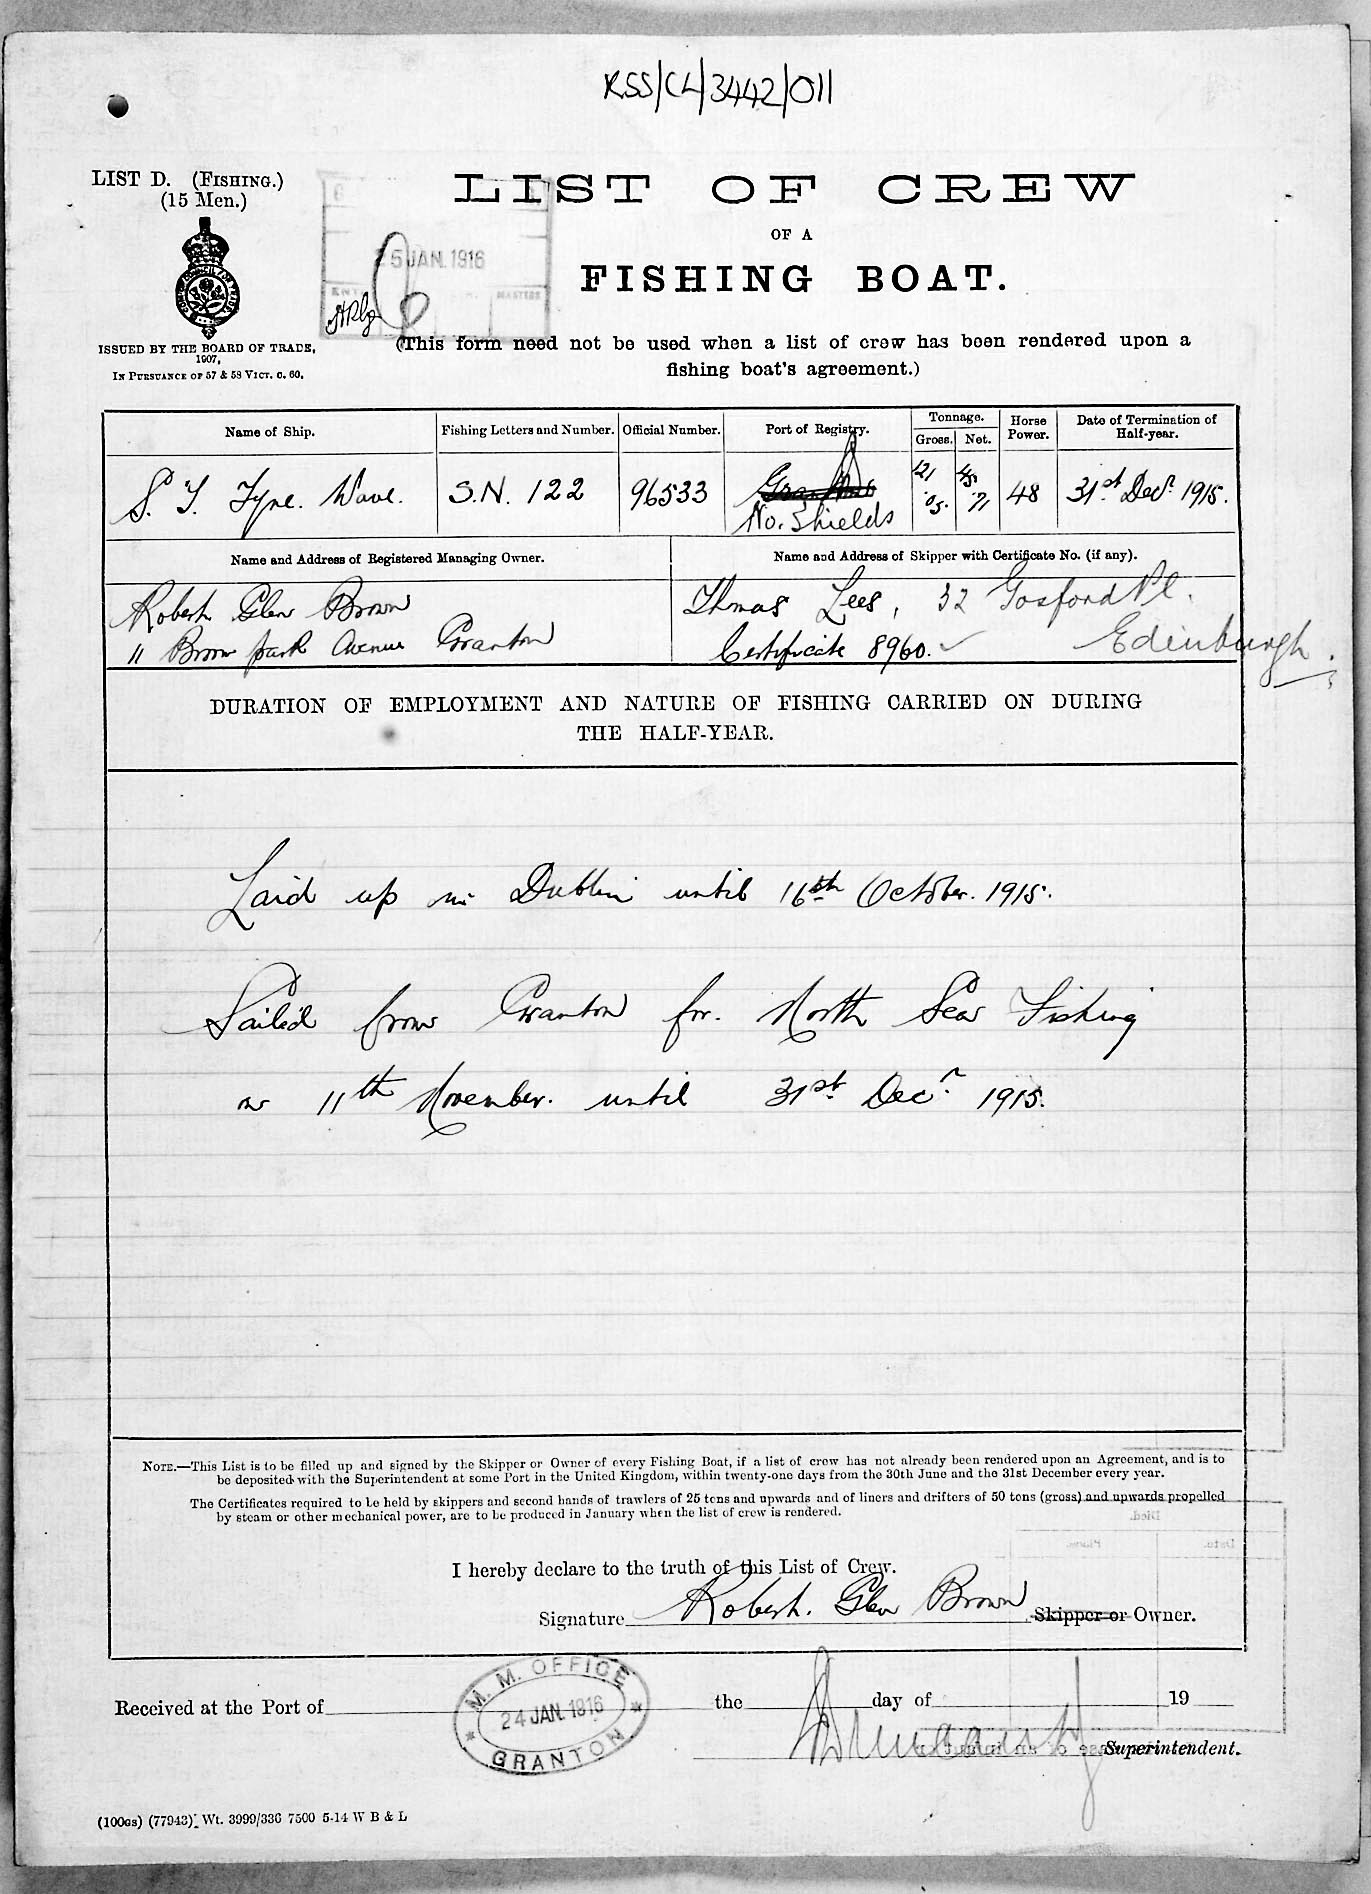 RSS/CL/3442/011
LIST D. (FISHING.)
(15 Men.)
ISSUED BY THE BOARD OF TRADE,
1907,
IN PURSUANCE OF 57 & 58 VICT. C. 60.
25 JAN. 1916
LIST OF CREW
OF A
FISHING BOAT.
(This form need not be used when a list of crew has been rendered upon a
fishing boat's agreement.)
Name of Ship. Fishing Letters and Number. Official Number. Port of Registry. Tonnage. Gross. Net. Horse Power. Date of Termination of Half-year.
S. T. Tyne Wave. S.N. 122 96533 Granton No. Shields 121 .05. 45 .71 48 31st Decr. 1915.
Name and Address of Registered Managing Owner. Name and Address of Skipper with Certificate No. (if any).
Robert Glen Brown Thomas Lees, 32 Gosford Pl.
11 Brown park Avenue Granton Certificate 8960. Edinburgh.
DURATION OF EMPLOYMENT AND NATURE OF FISHING CARRIED ON DURING
THE HALF-YEAR.
Laid up in Dublin until 16th October. 1915.
Sailed from Granton for. North Sea Fishing
on 11th November. until 31st Decr. 1915.
NOTE.—This List is to be filled up and signed by the Skipper or Owner of every Fishing Boat, if a list of crew has not already been rendered upon an Agreement, and is to
be deposited with the Superintendent at some Port in the United Kingdom, within twenty-one days from the 30th June and the 31st December every year.
The Certificates required to be held by skippers and second hands of trawlers of 25 tons and upwards and of liners and drifters of 50 tons (gross) and upwards propelled
by steam or other mechanical power, are to be produced in January when the list of crew is rendered.
I hereby declare to the truth of this List of Crew.
Signature Robert. Glen Brown Skipper or Owner.
M. M. OFFICE
24 JAN. 1916
GRANTON
Received at the Port of the day of 19
Superintendent.
(100GS) (77943). Wt. 3999/336 7500 5-14 W B & L